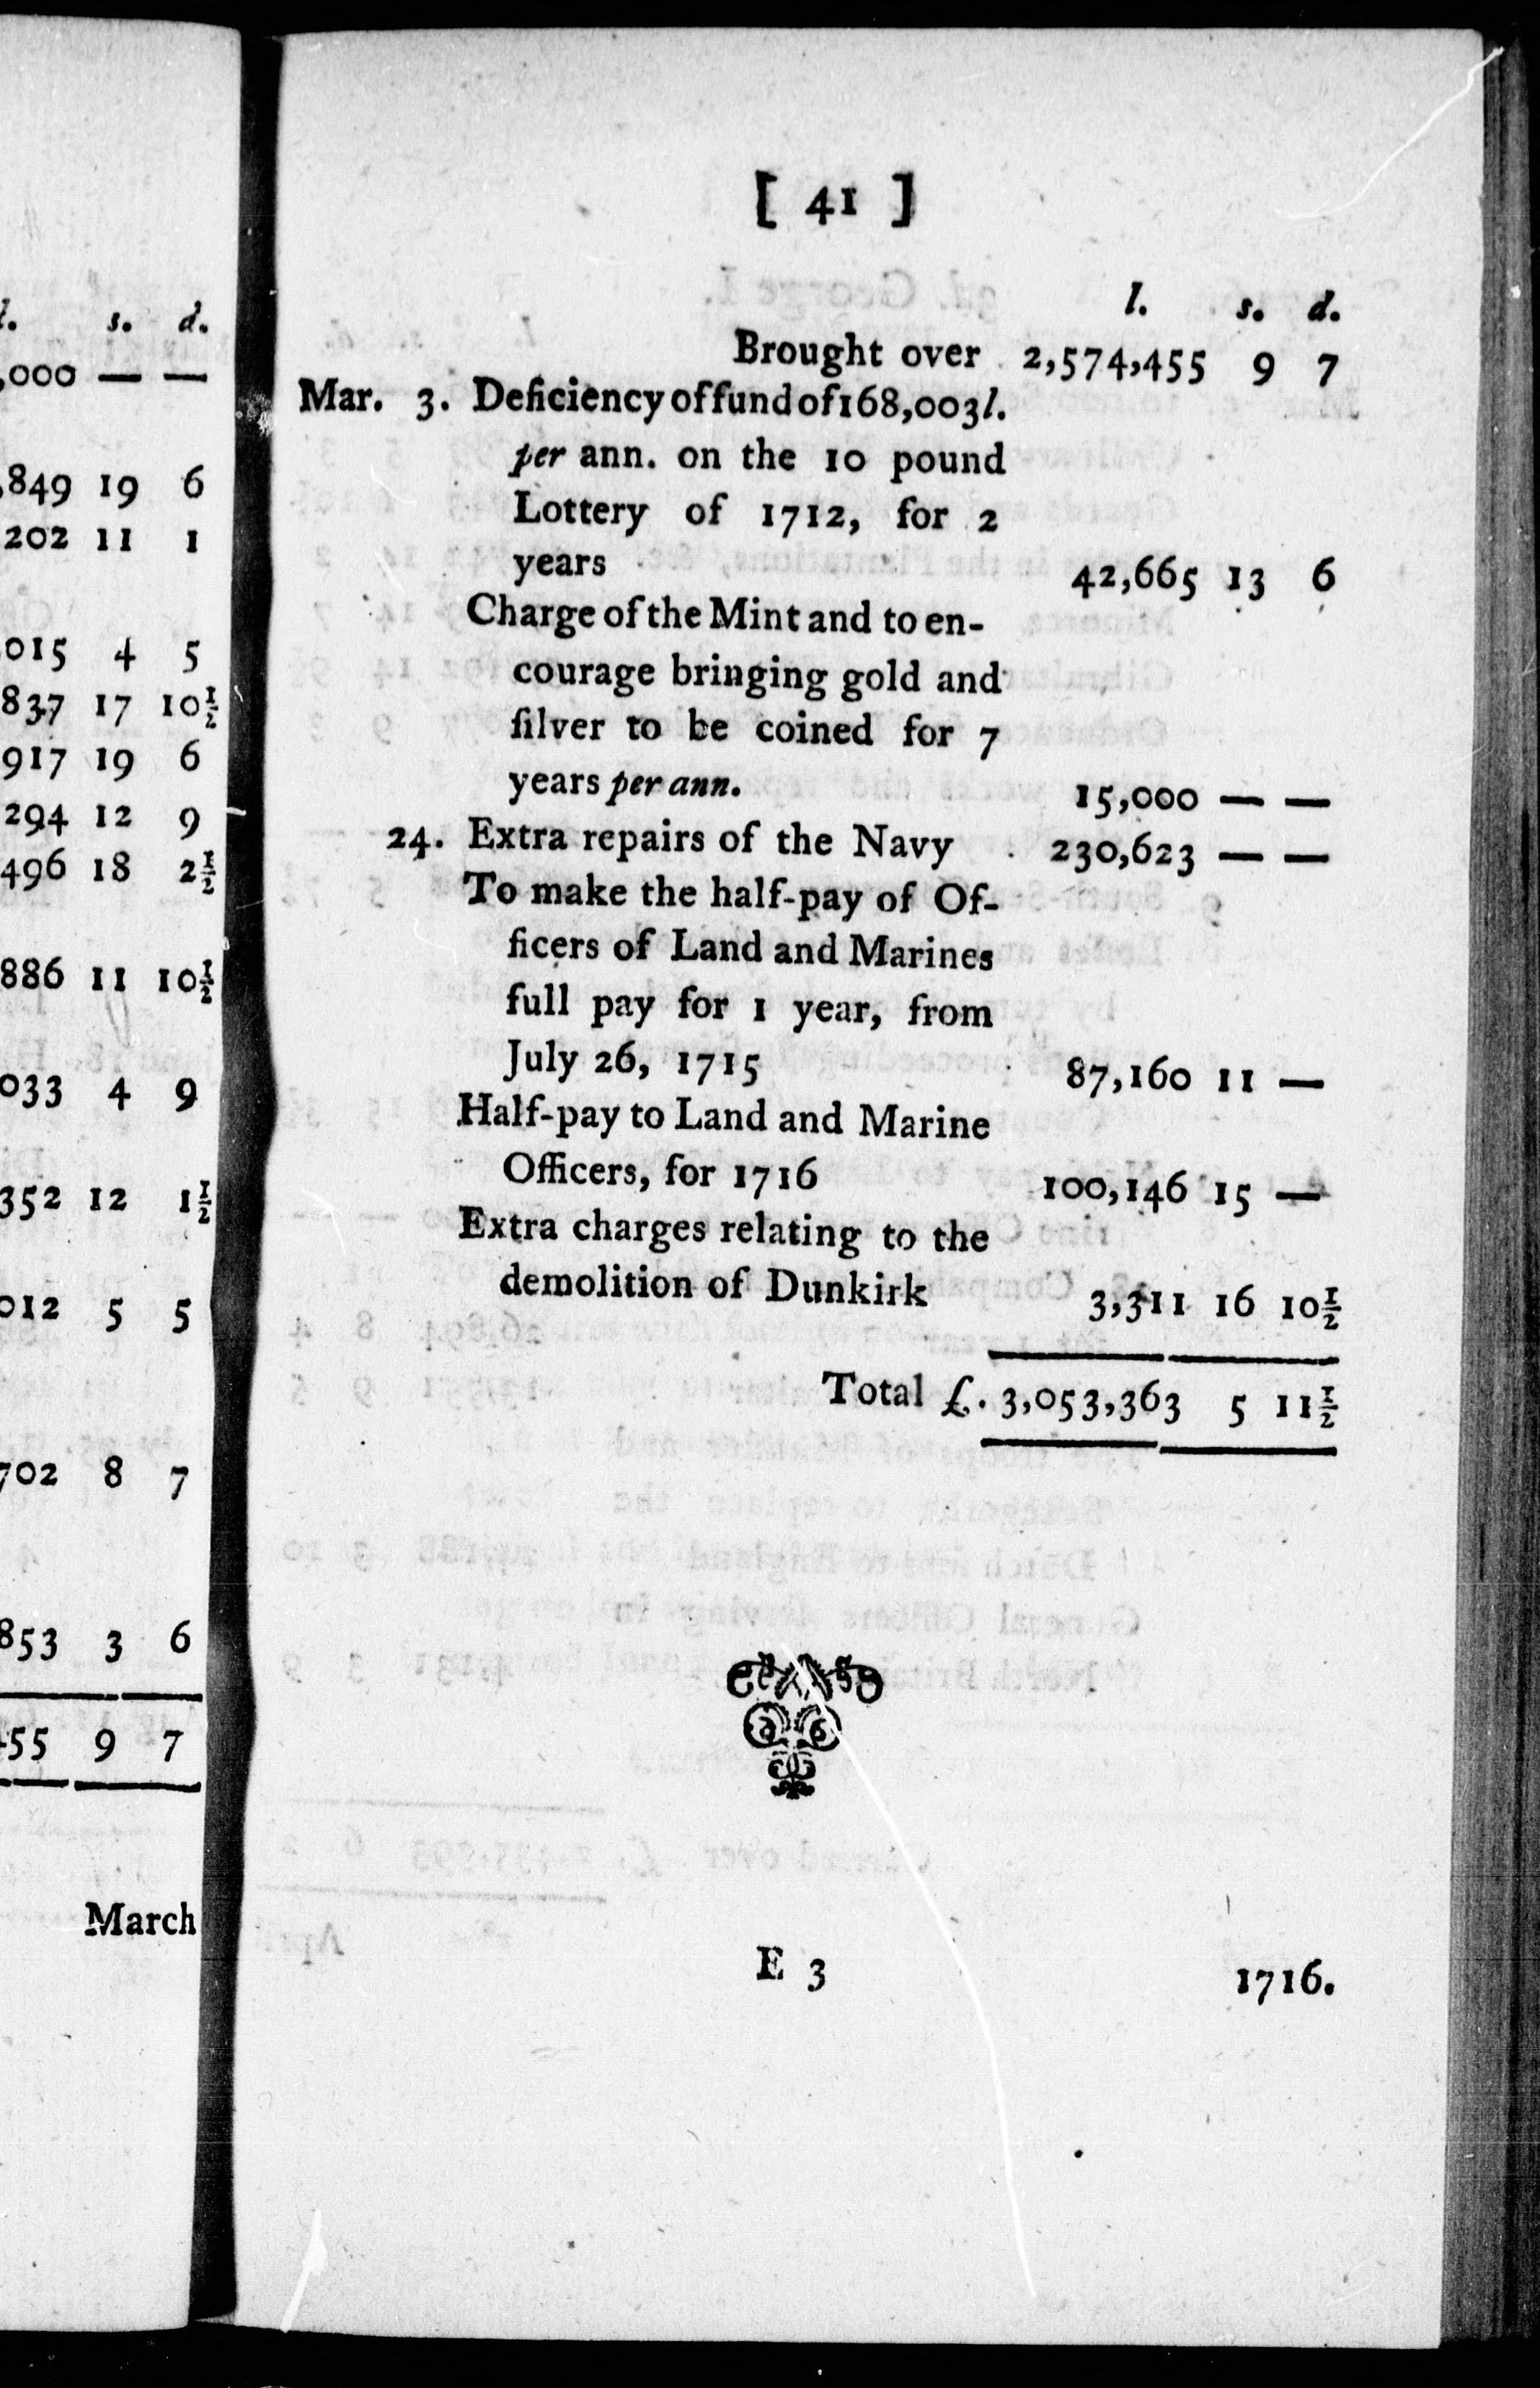 l. s. d.
,000 — —
,849 19 6
202 11 1
015 4 5
837 17 10½
917 19 6
294 12 9
496 18 2½
886 11 10½
033 4 9
352 12 1½
012 5 5
702 8 7
853 3 6
455 9 7
March
[ 41 ]
l. s. d.
Brought over 2,574,455 9 7
Mar. 3. Deficiency of fund of 168,003l.
per ann. on the 10 pound
Lottery of 1712, for 2
years 42,665 13 6
Charge of the Mint and to en-
courage bringing gold and
ſilver to be coined for 7
years per ann. 15,000 — —
24. Extra repairs of the Navy 230,623 — —
To make the half-pay of Of-
ficers of Land and Marines
full pay for 1 year, from
July 26, 1715 87,160 11 —
Half-pay to Land and Marine
Officers, for 1716 100,146 15 —
Extra charges relating to the
demolition of Dunkirk 3,311 16 10½
Total £. 3,053,363 5 11½
E 3 1716.